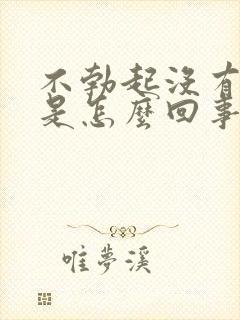 不勃起没有
是怎麼回事
唯夢溪